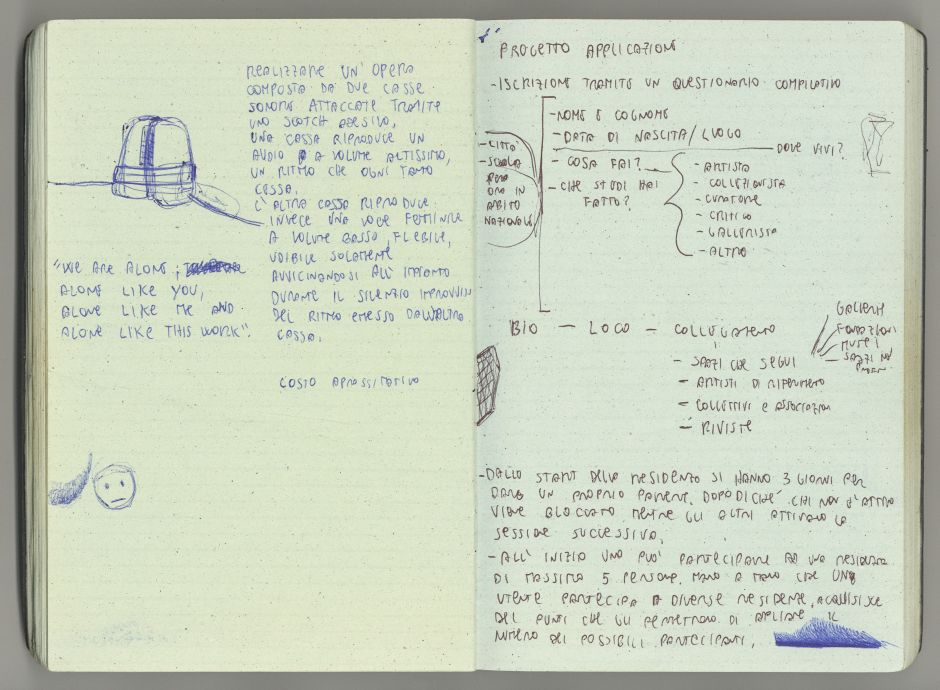 REALIZZARE UN' OPERA
COMPOSTA DA DUE CASSE
SONORE ATTACCATE TRAMITE
UNO SCOTCH ADESIVO,
UNA CASSA RIPRODUCE UN
AUDIO A VOLUME ALTISSIMO,
UN RITMO CHE OGNI TANTO
CESSA.
L'ALTRA CASSA RIPRODUCE
INVECE UNA VOCE FEMMINILE
A VOLUME BASSO, FLEBILE,
UDIBILE SOLAMENTE
AVVICINANDOSI ALL'IMPIANTO
DURANTE IL SILENZIO IMPROVVISO
DEL RITMO EMESSO DALL'ALTRA
CASSA.
"WE ARE ALONE,
ALONE LIKE YOU,
ALONE LIKE ME AND
ALONE LIKE THIS WORK".
COSTO APROSSIMATIVO
PROGETTO APPLICAZIONE
- ISCRIZIONE TRAMITE UN QUESTIONARIO COMPILATIVO
- NOME E COGNOME
- DATA DI NASCITA/LUOGO
DOVE VIVI?
- COSA FAI?
- CHE STUDI HAI
FATTO?
- ARTISTA
- COLLEZIONISTA
- CURATORE
- CRITICO
- GALLERISTA
- ALTRO
- CITTÀ
- SCUOLA
PER
ORA IN
AMBITO
NAZIONALE
BIO - LOGO - COLLEGAMENTO
- SPAZI CHE SEGUI
- ARTISTI DI RIFERIMENTO
- COLLETTIVI E ASSOCIAZIONI
- RIVISTE
GALLERIE
FONDAZIONI
MUSEI
- SPAZI NO
PROFIT
- DALLO START DELLA RESIDENZA SI HANNO 3 GIORNI PER
DARE UN PROPRIO PARERE, DOPODICHÉ CHI NON È ATTIVO
VIENE BLOCCATO MENTRE GLI ALTRI ATTIVANO LA
SESSIONE SUCCESSIVA.
- ALL'INIZIO UNO PUÒ PARTECIPARE AD UNA RESIDENZA
DI MASSIMO 5 PERSONE. MANO A MANO CHE UN
UTENTE PARTECIPA A DIVERSE RESIDENZE, ACQUISISCE
DEI PUNTI CHE GLI PERMETTONO DI AMPLIARE IL
NUMERO DEI POSSIBILI PARTECIPANTI.